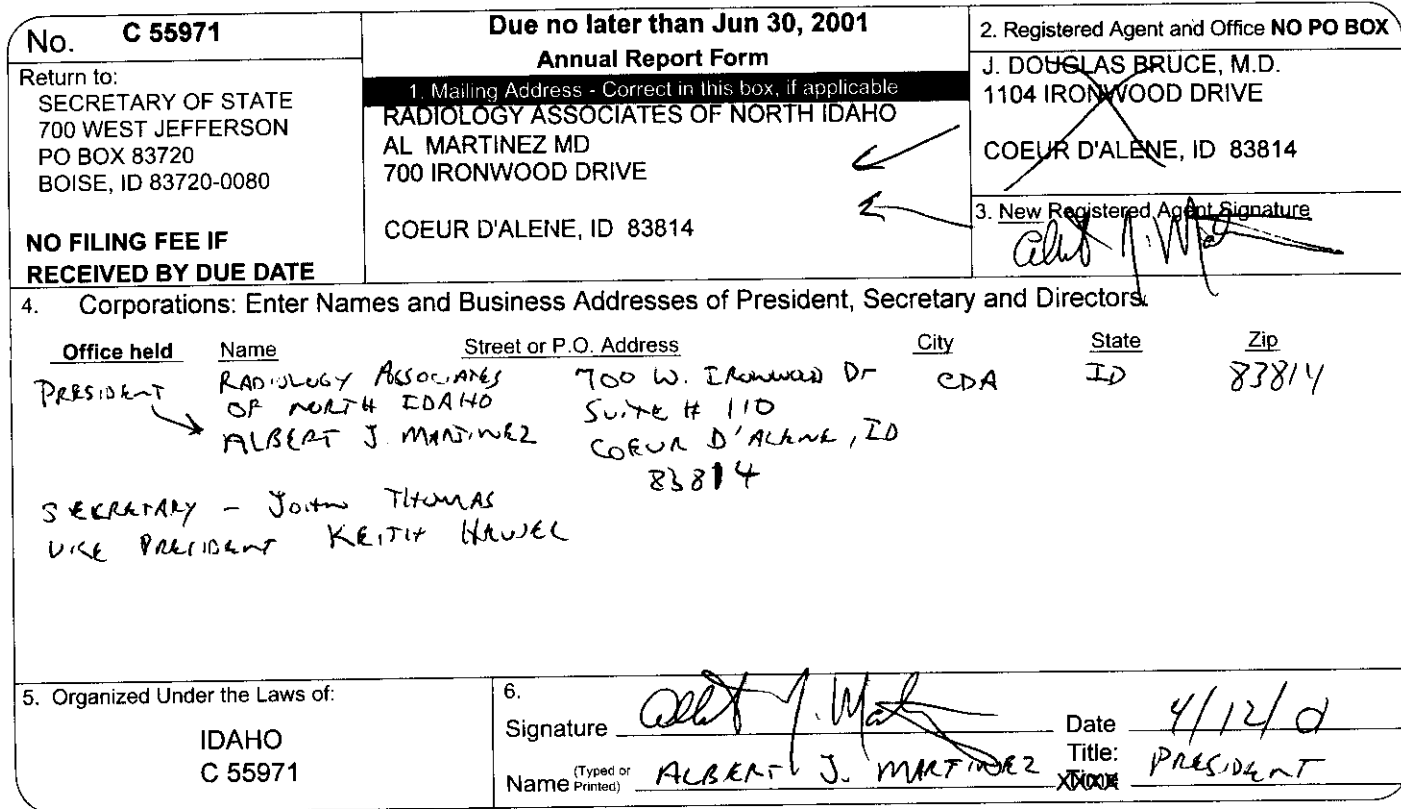 No. C 55971
Return to:
SECRETARY OF STATE
700 WEST JEFFERSON
PO BOX 83720
BOISE, ID 83720-0080
NO FILING FEE IF
RECEIVED BY DUE DATE
Due no later than Jun 30, 2001
Annual Report Form
1. Mailing Address - Correct in this box, if applicable
RADIOLOGY ASSOCIATES OF NORTH IDAHO
AL MARTINEZ MD
700 IRONWOOD DRIVE
COEUR D'ALENE, ID 83814
2. Registered Agent and Office NO PO BOX
J. DOUGLAS BRUCE, M.D.
1104 IRONWOOD DRIVE
COEUR D'ALENE, ID 83814
3. New Registered Agent Signature
4. Corporations: Enter Names and Business Addresses of President, Secretary and Directors.
Office held Name Street or P.O. Address City State Zip
PRESIDENT RADIOLOGY ASSOCIATES 700 W. IRONWOOD Dr CDA ID 83814
OF NORTH IDAHO SUITE # 110
ALBERT J. MARTINEZ COEUR D'ALENE, ID
83814
SECRETARY - JOHN THOMAS
VICE PRESIDENT KEITH
5. Organized Under the Laws of:
IDAHO
C 55971
6.
Signature Date 4/12/01
Name (Typed or Printed) ALBERT J. MARTINEZ Title: PRESIDENT